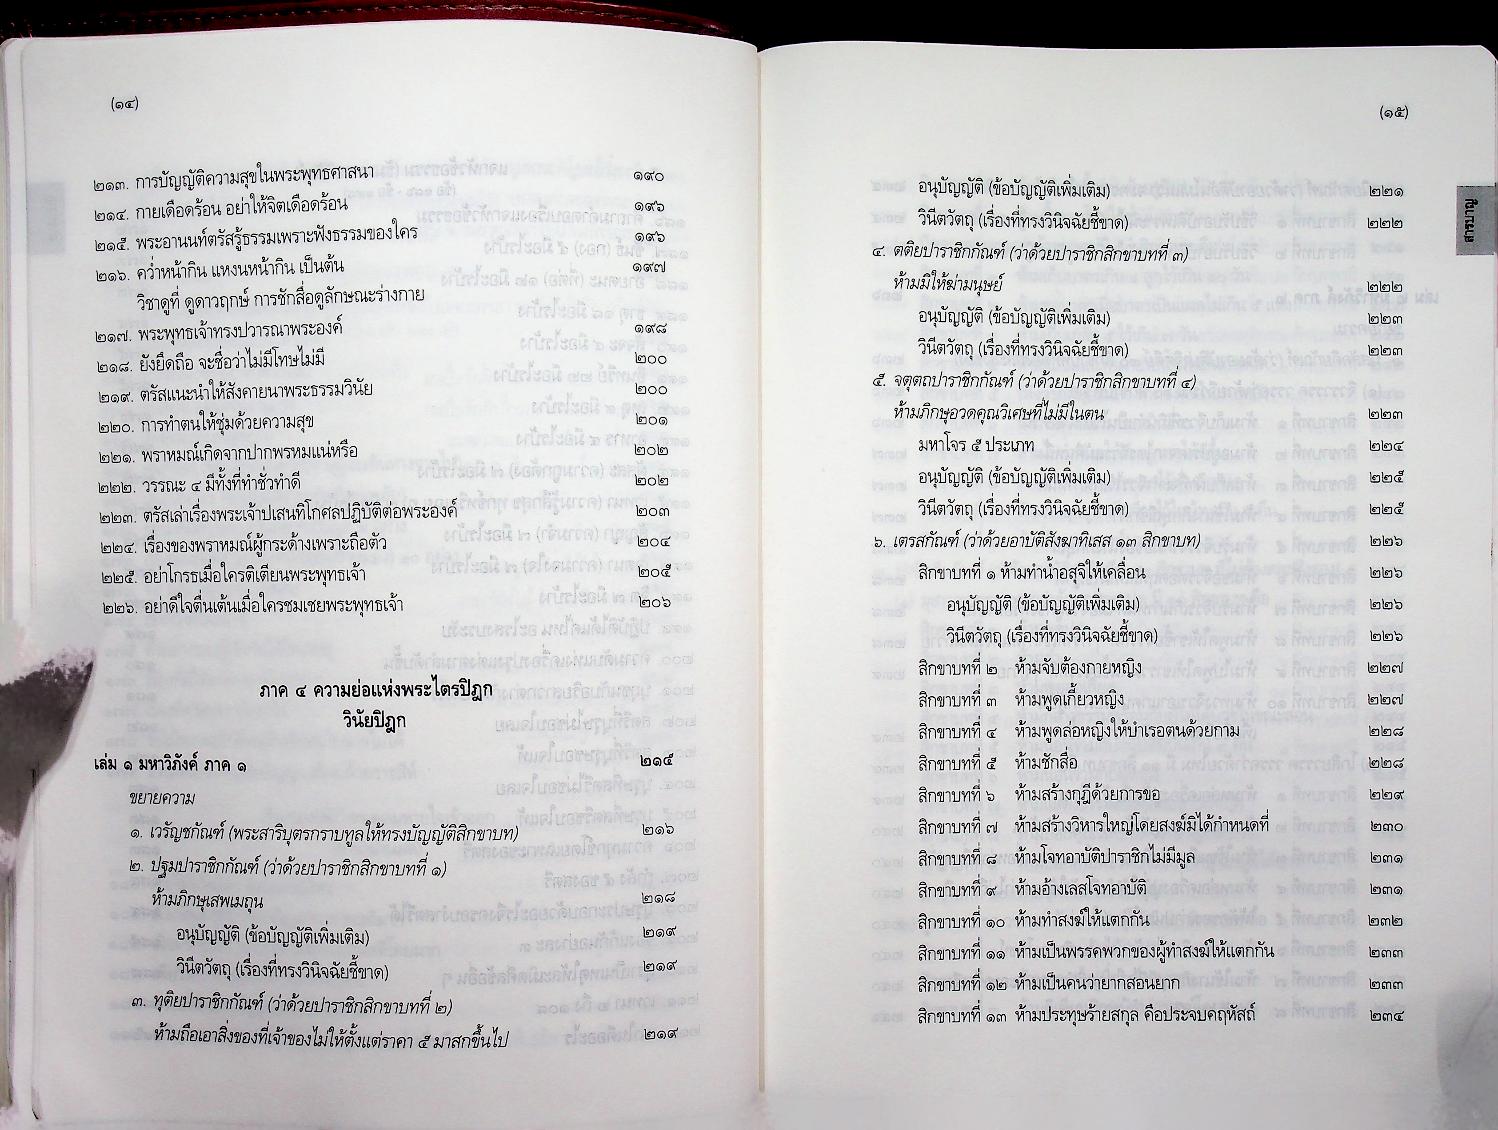 (๑๔)
๒๑๓. การบัญญัติความสุขในพระพุทธศาสนา ๑๙๐
๒๑๔. กายเดือดร้อน อย่าให้จิตเดือดร้อน ๑๙๖
๒๑๕. พระอานนท์ตรัสรู้ธรรมเพราะฟังธรรมของใคร ๑๙๖
๒๑๖. คว่ำหน้ากิน แหงนหน้ากิน เป็นต้น ๑๙๗
วิชาดูที่ ดูดาวฤกษ์ การชักสื่อดูลักษณะร่างกาย
๒๑๗. พระพุทธเจ้าทรงปวารณาพระองค์ ๑๙๘
๒๑๘. ยังยึดถือ จะชื่อว่าไม่มีโทษไม่มี ๒๐๐
๒๑๙. ตรัสแนะนำให้สังคายนาพระธรรมวินัย ๒๐๐
๒๒๐. การทำตนให้ชุ่มด้วยความสุข ๒๐๑
๒๒๑. พราหมณ์เกิดจากปากพรหมแน่หรือ ๒๐๒
๒๒๒. วรรณะ ๔ มีทั้งที่ทำชั่วทำดี ๒๐๒
๒๒๓. ตรัสเล่าเรื่องพระเจ้าปเสนทิโกศลปฏิบัติต่อพระองค์ ๒๐๓
๒๒๔. เรื่องของพราหมณ์ผู้กระด้างเพราะถือตัว ๒๐๔
๒๒๕. อย่าโกรธเมื่อใครติเตียนพระพุทธเจ้า ๒๐๕
๒๒๖. อย่าดีใจตื่นเต้นเมื่อใครชมเชยพระพุทธเจ้า ๒๐๖
ภาค ๔ ความย่อแห่งพระไตรปิฎก
วินัยปิฎก
เล่ม ๑ มหาวิภังค์ ภาค ๑ ๒๑๕
ขยายความ
๑. เวรัญชกัณฑ์ (พระสาริบุตรกราบทูลให้ทรงบัญญัติสิกขาบท) ๒๑๖
๒. ปฐมปาราชิกกัณฑ์ (ว่าด้วยปาราชิกสิกขาบทที่ ๑)
ห้ามภิกษุเสพเมถุน ๒๑๘
อนุบัญญัติ (ข้อบัญญัติเพิ่มเติม) ๒๑๙
วินีตวัตถุ (เรื่องที่ทรงวินิจฉัยชี้ขาด) ๒๑๙
๓. ทุติยปาราชิกกัณฑ์ (ว่าด้วยปาราชิกสิกขาบทที่ ๒)
ห้ามถือเอาสิ่งของที่เจ้าของไม่ให้ตั้งแต่ราคา ๕ มาสกขึ้นไป ๒๑๙
(๑๕)
อนุบัญญัติ (ข้อบัญญัติเพิ่มเติม) ๒๒๑
วินีตวัตถุ (เรื่องที่ทรงวินิจฉัยชี้ขาด) ๒๒๒
๔. ตติยปาราชิกกัณฑ์ (ว่าด้วยปาราชิกสิกขาบทที่ ๓)
ห้ามมิให้ฆ่ามนุษย์ ๒๒๒
อนุบัญญัติ (ข้อบัญญัติเพิ่มเติม) ๒๒๓
วินีตวัตถุ (เรื่องที่ทรงวินิจฉัยชี้ขาด) ๒๒๓
๕. จตุตถปาราชิกกัณฑ์ (ว่าด้วยปาราชิกสิกขาบทที่ ๔)
ห้ามภิกษุอวดคุณวิเศษที่ไม่มีในตน ๒๒๓
มหาโจร ๕ ประเภท ๒๒๔
อนุบัญญัติ (ข้อบัญญัติเพิ่มเติม) ๒๒๕
วินีตวัตถุ (เรื่องที่ทรงวินิจฉัยชี้ขาด) ๒๒๕
๖. เตรสกัณฑ์ (ว่าด้วยอาบัติสังฆาทิเสส ๑๓ สิกขาบท) ๒๒๖
สิกขาบทที่ ๑ ห้ามทำน้ำอสุจิให้เคลื่อน ๒๒๖
อนุบัญญัติ (ข้อบัญญัติเพิ่มเติม) ๒๒๖
วินีตวัตถุ (เรื่องที่ทรงวินิจฉัยชี้ขาด) ๒๒๖
สิกขาบทที่ ๒ ห้ามจับต้องกายหญิง ๒๒๗
สิกขาบทที่ ๓ ห้ามพูดเกี้ยวหญิง ๒๒๗
สิกขาบทที่ ๔ ห้ามพูดล่อหญิงให้บำเรอตนด้วยกาม ๒๒๘
สิกขาบทที่ ๕ ห้ามชักสื่อ ๒๒๘
สิกขาบทที่ ๖ ห้ามสร้างกุฎีด้วยการขอ ๒๒๙
สิกขาบทที่ ๗ ห้ามสร้างวิหารใหญ่โดยสงฆ์มิได้กำหนดที่ ๒๓๐
สิกขาบทที่ ๘ ห้ามโจทอาบัติปาราชิกไม่มีมูล ๒๓๑
สิกขาบทที่ ๙ ห้ามอ้างเลสโจทอาบัติ ๒๓๑
สิกขาบทที่ ๑๐ ห้ามทำสงฆ์ให้แตกกัน ๒๓๒
สิกขาบทที่ ๑๑ ห้ามเป็นพรรคพวกของผู้ทำสงฆ์ให้แตกกัน ๒๓๓
สิกขาบทที่ ๑๒ ห้ามเป็นคนว่ายากสอนยาก ๒๓๓
สิกขาบทที่ ๑๓ ห้ามประทุษร้ายสกุล คือประจบคฤหัสถ์ ๒๓๔
สารบาญ